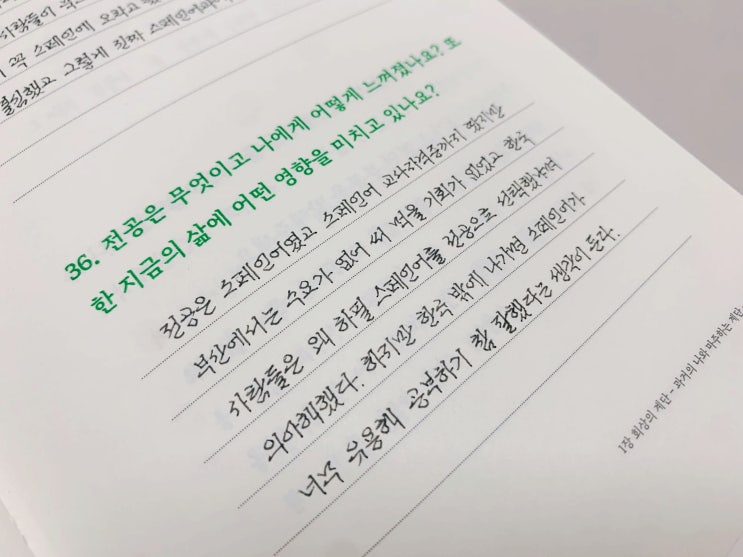 꼭 스페인에 오라고
그렇게 진짜 스페인어과
36. 전공은 무엇이고 나에게 어떻게 느껴졌나요? 또
한 지금의 삶에 어떤 영향을 미치고 있나요?
전공은 스페인어였고 스페인어 교사자격증까지 땄지만
부산에서는 수요가 없어 써 먹을 기회가 없었고 한국
사람들은 왜 하필 스페인어를 전공으로 선택했냐며
의아해했다. 하지만 한국 밖에 나가면 스페인어가
너무 유용해 공부하기 참 잘했다는 생각이 든다.
1장 회상의 계단 - 과거의 나와 마주하는 계단